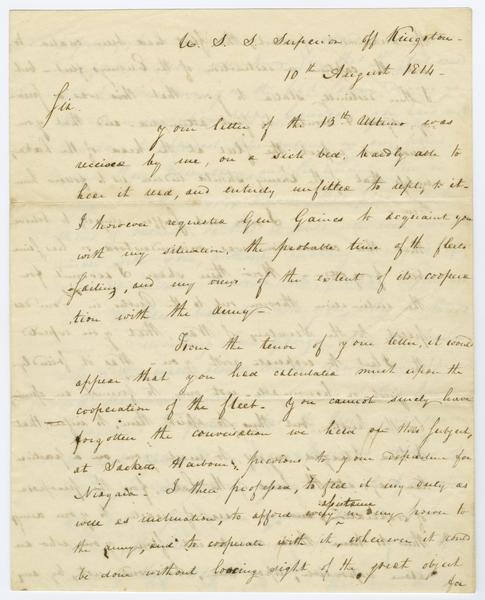 U. S. S. Superior off Kingston-
10th August 1814-
Sir
your letter of the 13th Ultimo was
received by me, on a sick bed, hardly able to
hear it read, and entirely unfitted to reply to it-
I however requested Genl Gaines to acquaint you
with my situation, the probable time of the fleets
sailing, and my views of the extent of its coopera
tion with the army-
From the tenor of your letter, it would
appear that you had calculated much upon the
cooperation of the fleet- You cannot surely have
forgotten the conversation we held on this subject,
at Sacketts Harbour, previous to your departure for
Niagara- I then professed, to feel it my duty as
well as inclination, to afford every assistance in my power to
the army, and to cooperate with it, whenever it could
be done without loosing sight of the great object
for